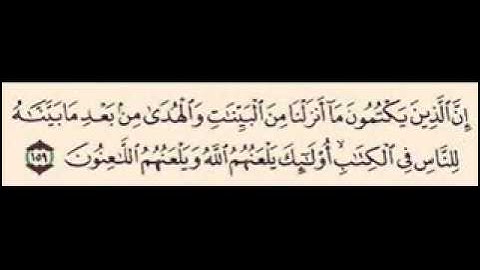 إِنَّ ٱلَّذِينَ يَكۡتُمُونَ مَآ أَنزَلۡنَا مِنَ ٱلۡبَيِّنَٰتِ وَٱلۡهُدَىٰ مِنۢ بَعۡدِ مَا بَيَّنَّٰهُ
لِلنَّاسِ فِي ٱلۡكِتَٰبِ أُوْلَٰٓئِكَ يَلۡعَنُهُمُ ٱللَّهُ وَيَلۡعَنُهُمُ ٱللَّٰعِنُونَ ١٥٩